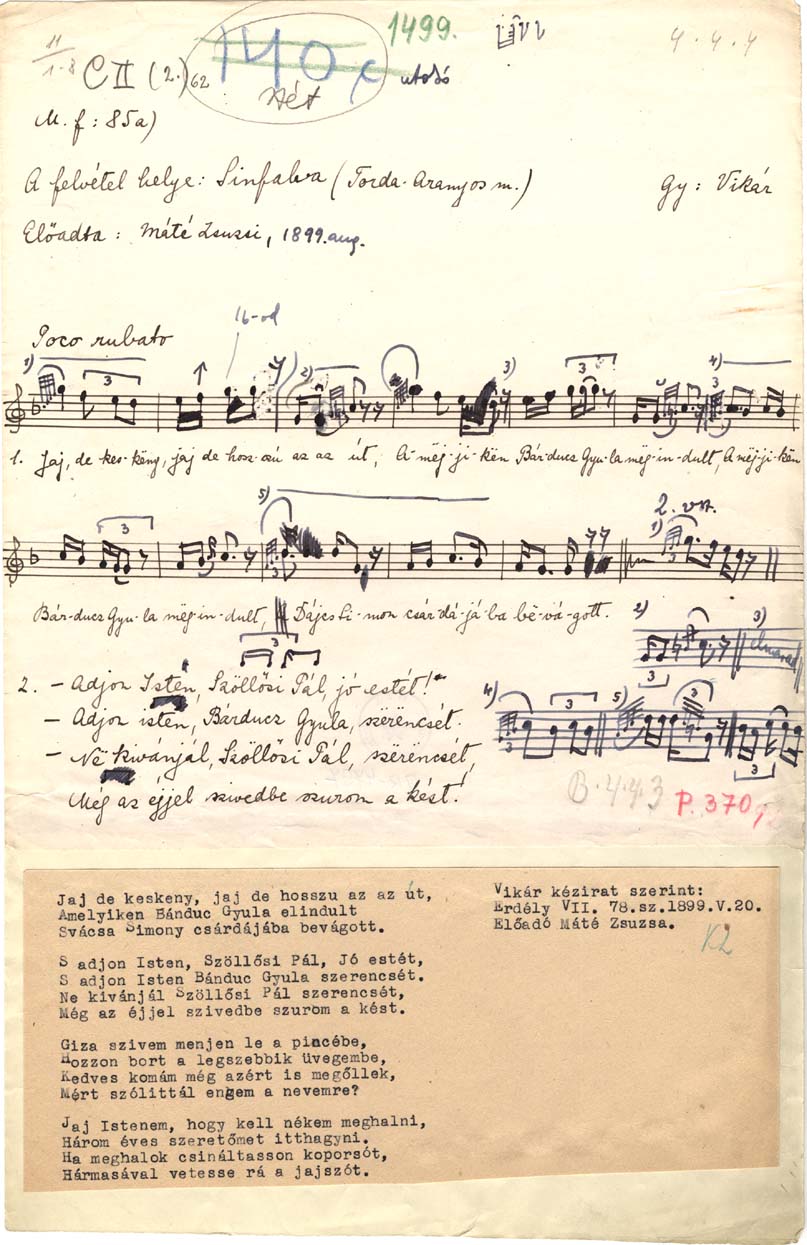 11
1-8
C II (2.) 62
140 c
Hét
1499.
utolsó
4.4.4
M. f: 85a)
A felvétel helye: Sinfalva (Torda-Aranyos m.)
Gy: Vikár
Előadta: Máté Zsuzsi, 1899. aug.
16-od
Poco rubato
1) 2) 3) 4)
3 3 3
1. Jaj, de kes-këny, jaj de hosz-szú az az út, A-mëj-ji-kën Bár-ducz Gyu-la mëg-in-dult, A mëj-ji-kën
5)
3
2. vsz.
1)
Bár-ducz Gyu-la mëg-in-dult, Dájcs Si-mon csár-dá-já-ba bë-vá-gott.
3
2) 3)
elmarad
3
2. – Adjon Istën, Szöllősi Pál, jó estét!
– Adjon istën, Bárducz Gyula, szërëncsét.
– Në kivánjál, Szöllősi Pál, szërëncsét,
Még az éjjel szivedbe szurom a kést!
4) 5)
3 3 3 3
B.4.4.3
P. 370
Jaj de keskeny, jaj de hosszu az az út,
Amelyiken Bánduc Gyula elindult
Svácsa Simony csárdájába bevágott.
S adjon Isten, Szöllősi Pál, Jó estét,
S adjon Isten Bánduc Gyula szerencsét.
Ne kivánjál Szöllősi Pál szerencsét,
Még az éjjel szivedbe szurom a kést.
Giza szivem menjen le a pincébe,
Hozzon bort a legszebbik üvegembe,
Kedves komám még azért is megőllek,
Mért szólittál engem a nevemre?
Jaj Istenem, hogy kell nékem meghalni,
Három éves szeretőmet itthagyni.
Ha meghalok csináltasson koporsót,
Hármasával vetesse rá a jajszót.
Vikár kézirat szerint:
Erdély VII. 78.sz.1899.V.20.
Előadó Máté Zsuzsa.
K2